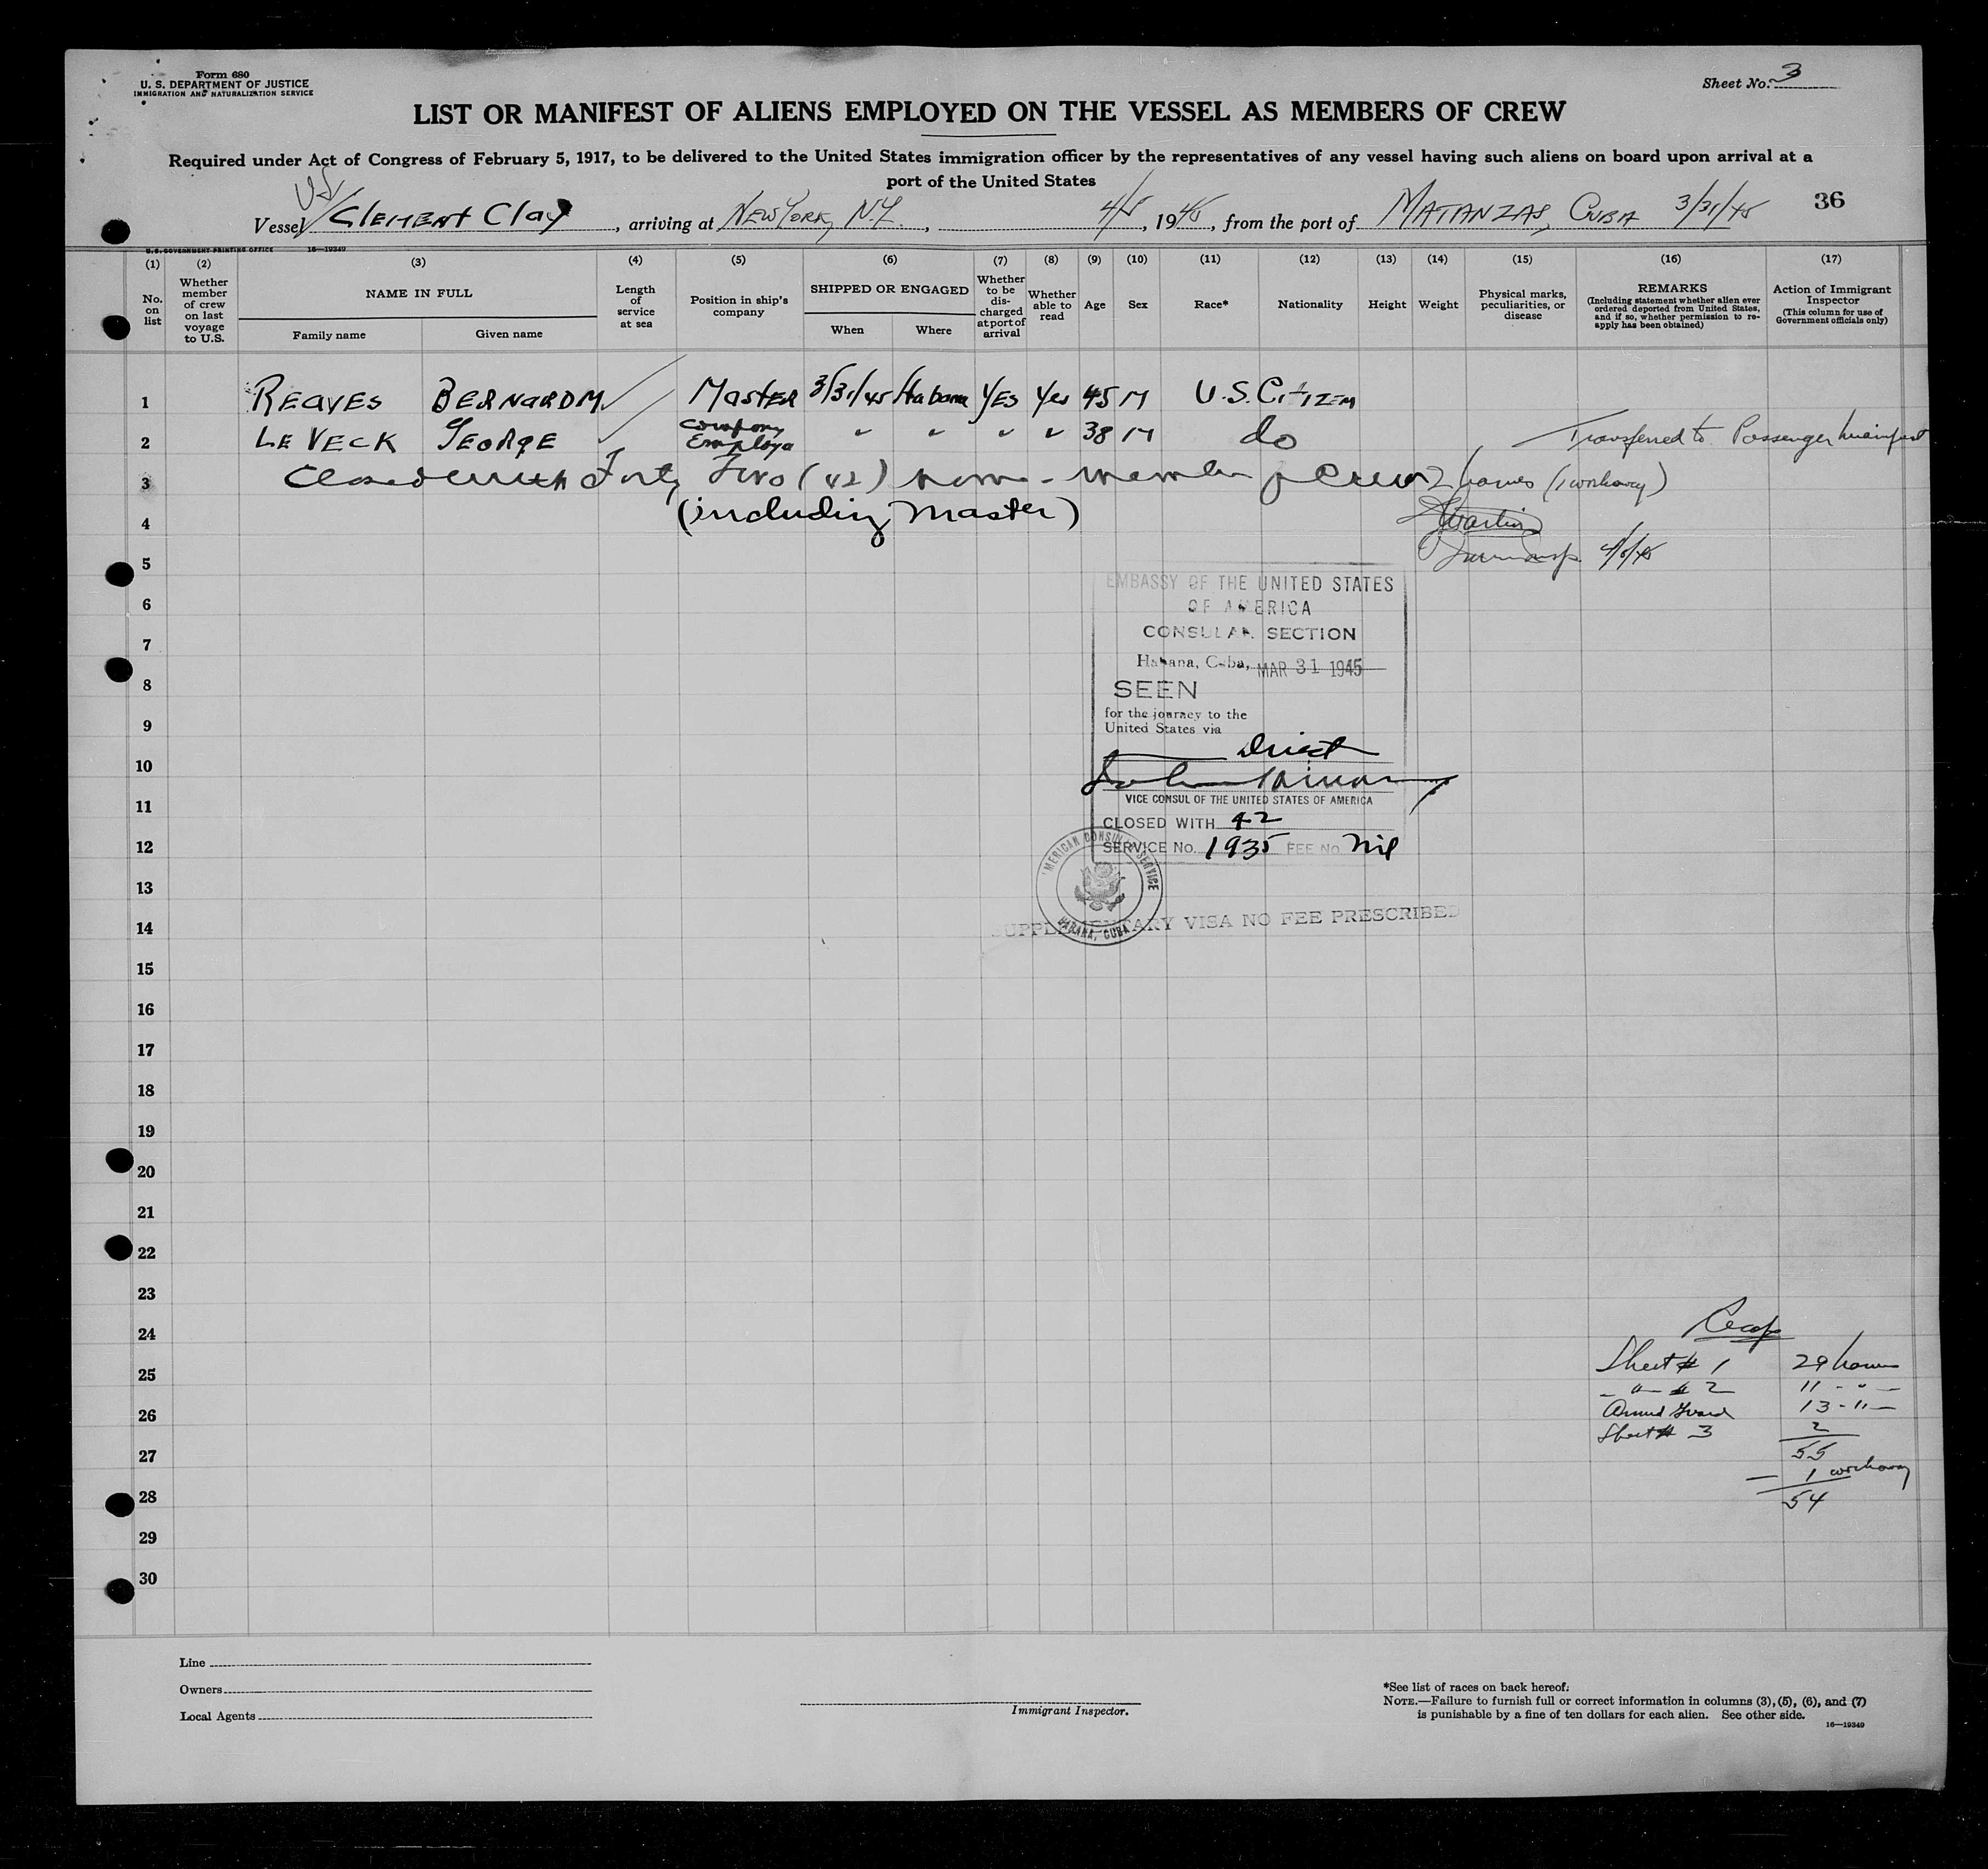 Form 680
U. S. DEPARTMENT OF JUSTICE
IMMIGRATION AND NATURALIZATION SERVICE
Sheet No. 3
LIST OR MANIFEST OF ALIENS EMPLOYED ON THE VESSEL AS MEMBERS OF CREW
Required under Act of Congress of February 5, 1917, to be delivered to the United States immigration officer by the representatives of any vessel having such aliens on board upon arrival at a
port of the United States
36
Vessel Clement Clay, arriving at New York, N.Y., 4/5, 1945, from the port of MATANZAS, CUBA 3/31/45
U. S. GOVERNMENT PRINTING OFFICE 16—19349
(1) (2) (3) (4) (5) (6) (7) (8) (9) (10) (11) (12) (13) (14) (15) (16) (17)
No. on list
Whether member of crew on last voyage to U.S.
NAME IN FULL
Family name
Given name
Length of service at sea
Position in ship's company
SHIPPED OR ENGAGED
When
Where
Whether to be discharged at port of arrival
Whether able to read
Age
Sex
Race*
Nationality
Height
Weight
Physical marks, peculiarities, or disease
REMARKS
(Including statement whether alien ever ordered deported from United States, and if so, whether permission to re-apply has been obtained)
Action of Immigrant Inspector
(This column for use of Government officials only)
1 REAVES BERNARD M. Master 3/31/45 Habana Yes Yes 45 M U.S. Citizen
2 LE VECK GEORGE Company Employe " " " " 38 M do Transferred to Passenger manifest
3 Closed with Forty Two (42) members of crew 2 names (1 workaway)
4 (including Master)
5 4/5/45
EMBASSY OF THE UNITED STATES
6 OF AMERICA
7 CONSULAR SECTION
Habana, Cuba, MAR 31 1945
8 SEEN
for the journey to the
9 United States via
Direct
10
11 VICE CONSUL OF THE UNITED STATES OF AMERICA
CLOSED WITH 42
12 SERVICE No. 1935 FEE No. Nil
AMERICAN CONSULAR SERVICE
13
HABANA, CUBA
14 SUPPLEMENTARY VISA NO FEE PRESCRIBED
15
16
17
18
19
20
21
22
23
24 Recap
25 Sheet # 1 29 names
" # 2 11 " "
26 Armed Guard 13 - " -
Sheet # 3 2
27 55
— 1 workaway
28 54
29
30
Line
Owners
Local Agents
Immigrant Inspector.
*See list of races on back hereof.
NOTE.—Failure to furnish full or correct information in columns (3), (5), (6), and (7)
is punishable by a fine of ten dollars for each alien. See other side.
16—19349